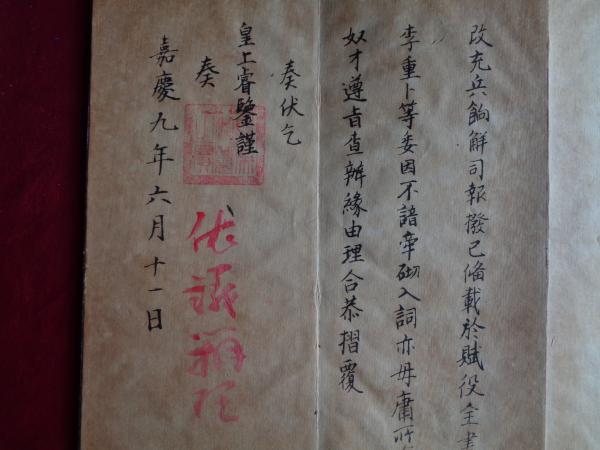 改充兵餉解司報撥已偹載於賦役全書
李重卜等委因不諳牽砌入詞亦毋庸
奴才遵旨查辦緣由理合恭摺覆
奏伏乞
皇上睿鑒謹
奏
依議
嘉慶九年六月十一日